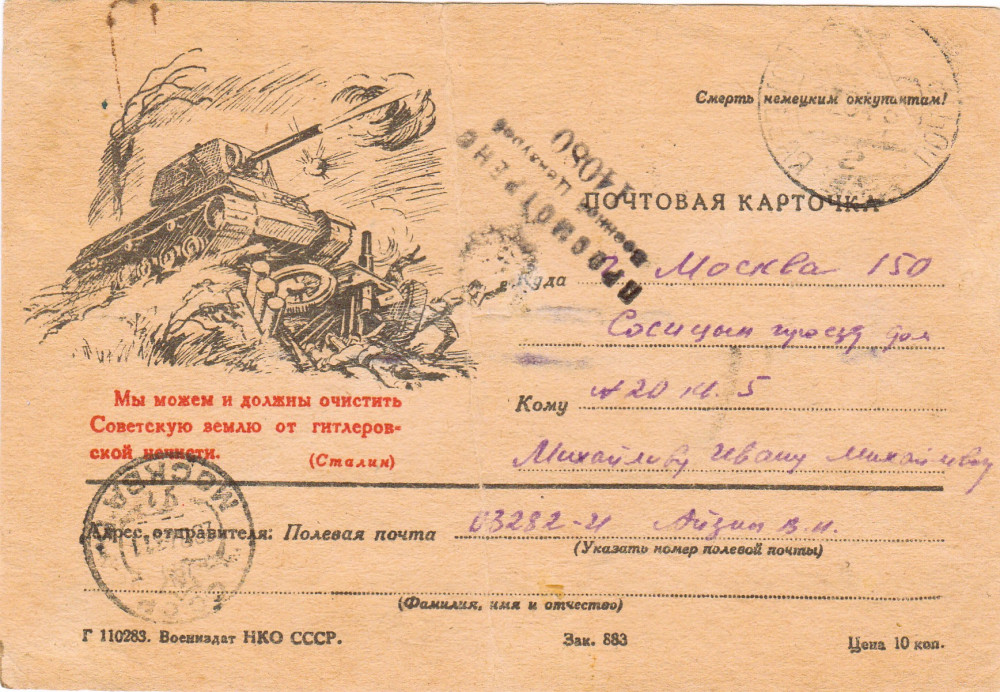 Смерть немецким оккупантам!
ПРОСМОТРЕНО
Военной Цензурой
14080
ПОЧТОВАЯ КАРТОЧКА
Куда г. Москва 150
дом
Кому №20 кв. 5
Михайлову Ивану Михайлович
Мы можем и должны очистить
Советскую землю от гитлеров-
ской нечисти. (Сталин)
МОСКВА
СССР
Адрес отправителя: Полевая почта 03282-И В.И.
(Указать номер полевой почты)
(Фамилия, имя и отчество)
Г 110283. Воениздат НКО СССР. Зак. 883 Цена 10 коп.